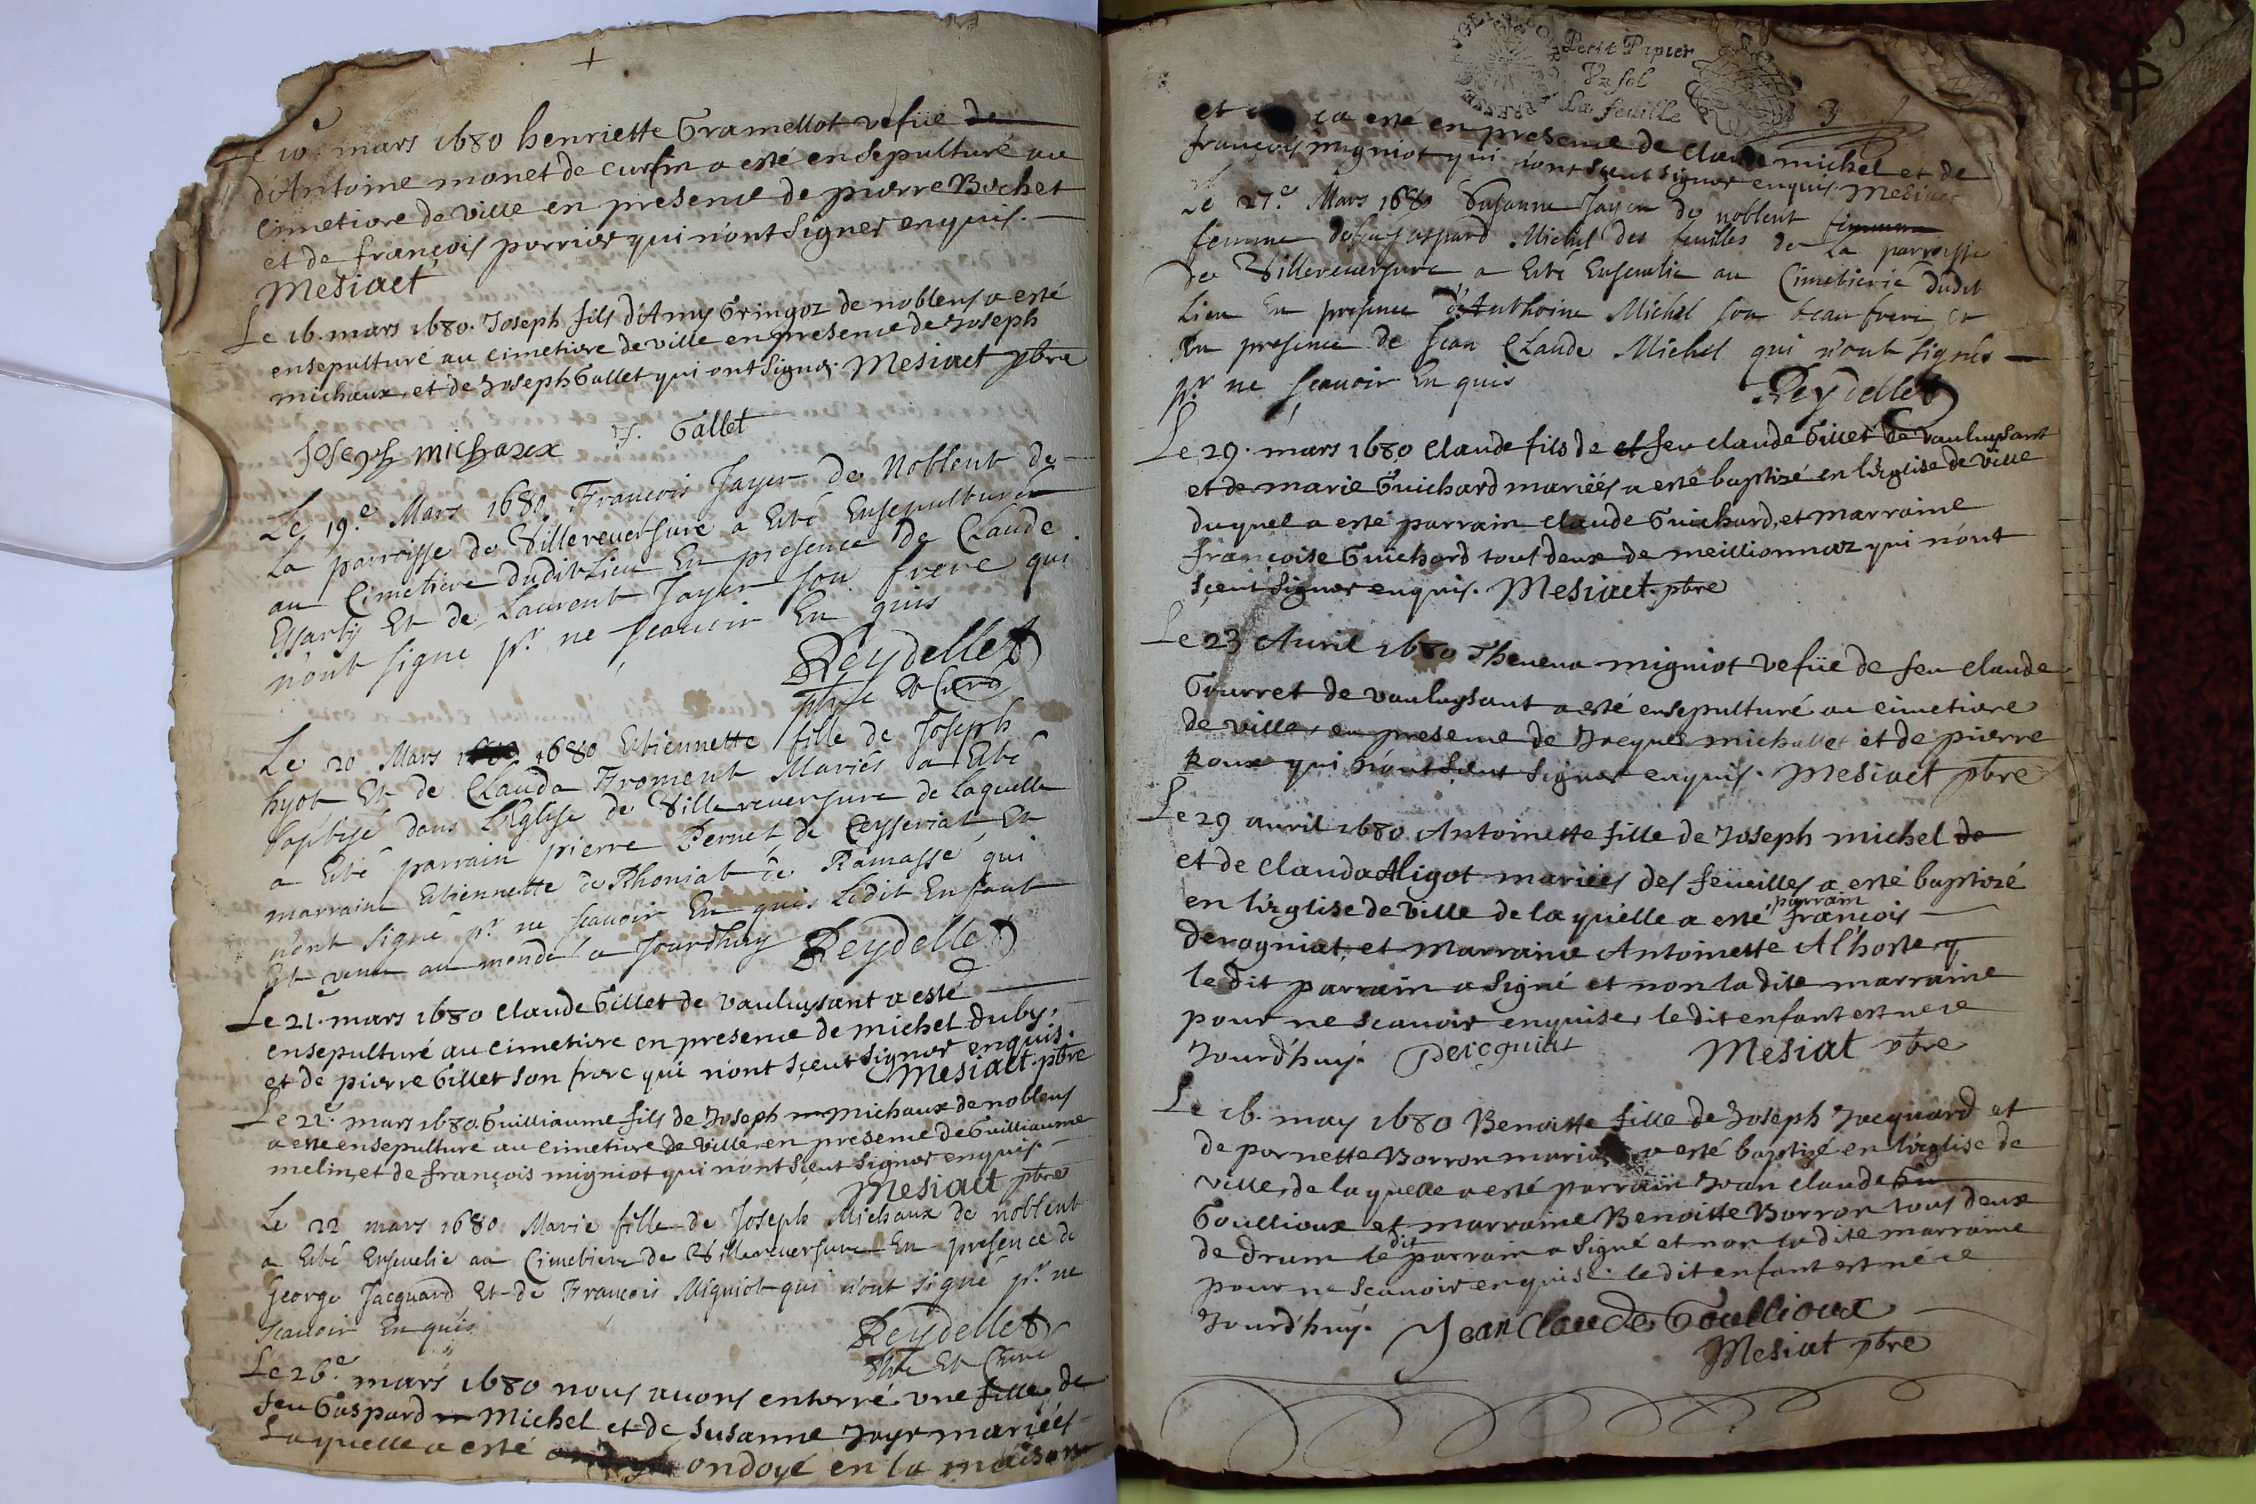 +
Le 10e mars 1680 henriette Gramellot vefüe de
d'Antoine monet de curfin a esté ensepulturé au
cimetiere de ville en presence de pierre Bochet
et de françois perrier qui n'ont signer enquis.
Mesiact
Le 16. mars 1680. Joseph fils d'Amy Gringoz de noblens a esté
ensepulturé au cimetiere de ville en presence de Joseph
michaux, et de Joseph Gallet qui ont signer. Mesiact pbre
Joseph michaux J. Gallet
Le 19.e Mars 1680 François Jayer de Noblent de
La parroisse de Villereuersure a Esté Ensepulturée
au Cimetiere dudit Lieu En presence de Claude
Essartz Et de Laurent Jayer son frere qui
n'ont signe pr. ne scauoir En quis
Reydellet
pbre Et Curé
Le 20 Mars 1680 Estiennette fille de Joseph
hyot Et de Clauda Froment Mariés a Esté
baptisé dans L'Eglise de Villereuersure de laquelle
a Esté parrain pierre Pernet de Ceyseriat Et
marraine Estiennette de Rhoniat de Ramasse qui
n'ont signé pr ne scauoir En quis Ledit Enfant
Est venu au monde Ce Jourdhuy Reydellet
Le 21. mars 1680 claude Gillet de vauluysant a esté
ensepulturé au cimetiere en presence de michel duby,
et de pierre Gillet son frere qui n'ont sçeut signer enquis.
Mesiact pbre
Le 22. mars 1680. Guilliaume fils de Joseph michaux de noblens
a esté ensepulturé au cimetiere de ville, en presence de Guilliaume
melin, et de françois migniot qui n'ont sçeut signer enquis.
Mesiact pbre
Le 22 mars 1680 Marie fille de Joseph Michaux de noblent
a Esté Enseuelie au Cimetiere de Villereuersure En presence de
George Jacquard Et de François Migniot qui n'ont signé pr. ne
scauoir En quis
Reydellet
pbre Et Curé
Le 26e. mars 1680 nous auons enterré une fille de
feu Gaspard Michel et de Susanne Jayr mariées
Laquelle a esté ondoyé en la maison
Petit Papier
Vn sol
La feuille
3
et ça esté en presence de claude michel et de
françois migniot qui n'ont sçeut signer enquis. Mesiact
Le 27.e Mars 1680 Susanne Jayer de noblent
femme de feu Gaspard Michel des feuilles de La parroisse
de Villereuersure a Esté Enseuelie au Cimetiere dudit
Lieu En presence d'Anthoine Michel son beau frere, Et
En presence de Jean Claude Michel qui n'ont signés
pr. ne scauoir En quis
Reydellet
Le 29. mars 1680 claude fils de feu claude Gillet de vauluysant
et de marie Guichard mariées a esté baptizé en l'église de ville
duquel a esté parrain claude Guichard, et marraine
françoise Guichard tout deux de meillionnaz qui n'ont
sçeut signer enquis. Mesiact. pbre
Le 23 Auril 1680 Theuena migniot vefüe de feu claude
Gourret de vauluysant a esté ensepulturé au cimetiere
de ville, en presence de Jacques michallet et de pierre
Roux qui n'ont sçeut signer enquis. Mesiact pbre
Le 29 auril 1680. Antoinette fille de Joseph michel de
et de clauda Aligot mariées des feüeilles a esté baptizé
en l'église de ville de laquelle a esté parrain françois
derogniat, et marraine Antoinette Alhoste, q
le dit parrain a signé et non la dite marraine
pour ne scauoir enquise, le dit enfant est né ce
Jourd'huy. Derogniat Mesiat pbre
Le 16. may 1680 Benoitte fille de Joseph Jacquard et
de pernette Borron mariées a esté baptizé en l'église de
ville, de laquelle a esté parrain Jean claude
Goullioux et marraine Benoitte Borron tous deux
de drum le dit parrain a signé et non la dite marraine
pour ne scauoir enquise. le dit enfant est né ce
Jourd'huy. Jean Claude Goullioux
Mesiat pbre